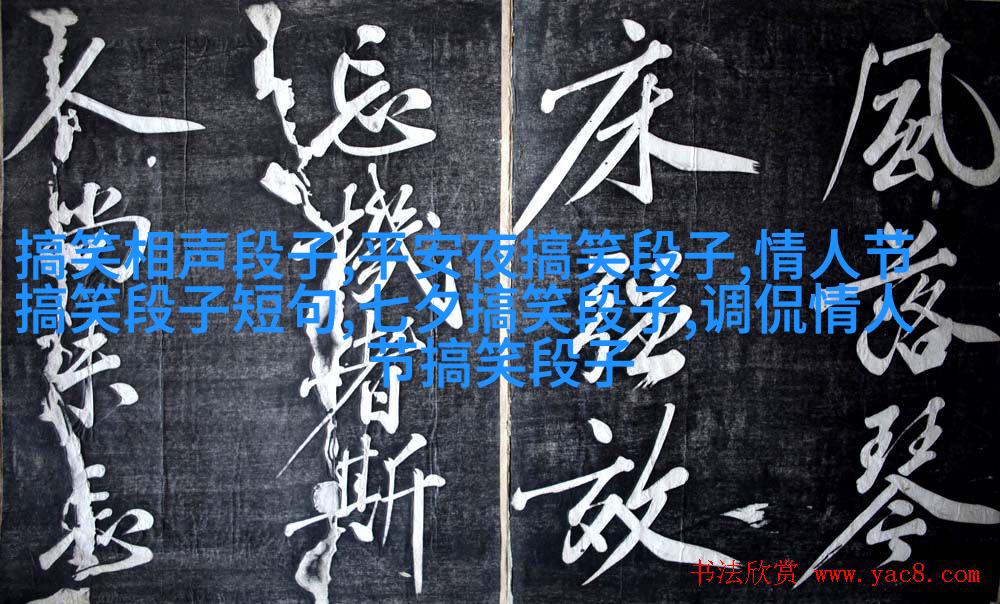 搞笑相声段子,平安夜搞笑段子,情人节
搞笑段子短句,七夕搞笑段子,调侃情人
节搞笑段子
風落琴
床
忘機者斯
书法欣赏 www.yac8.com